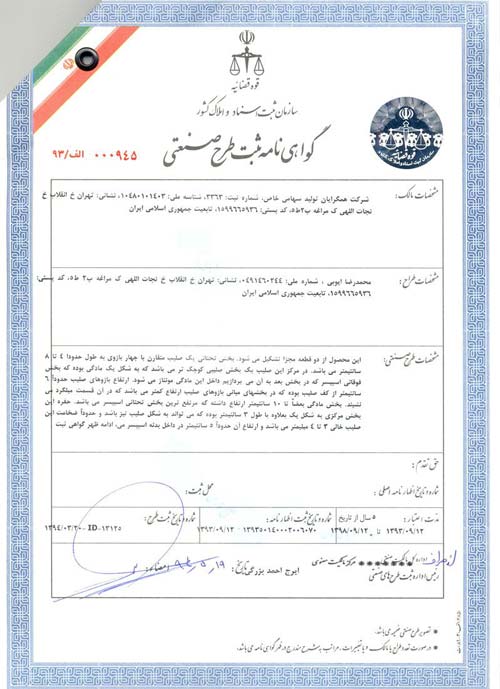 قوه قضائیه
سازمان ثبت اسناد و املاک کشور
گواهی نامه ثبت طرح صنعتی
۰۰۰۹۴۵ الف/۹۳
قوه قضائیه
مشخصات مالک:
شرکت همگرایان تولید سهامی خاص، شماره ثبت: ۳۳۶۳، شناسه ملی: ۱۰۴۸۰۱۰۱۴۰۳، نشانی: تهران خ انقلاب خ
نجات اللهی ک مراغه پ۲ط۵، کد پستی: ۱۵۹۹۶۶۵۹۳۶، تابعیت جمهوری اسلامی ایران
مشخصات طراح:
محمدرضا ایوبی، شماره ملی: ۰۴۹۱۴۶۰۲۴۴، نشانی: تهران خ انقلاب خ نجات اللهی ک مراغه پ۲ ط۵، کد پستی:
۱۵۹۹۶۶۵۹۳۶، تابعیت جمهوری اسلامی ایران
مشخصات طرح صنعتی:
این محصول از دو قطعه مجزا تشکیل می شود. بخش تحتانی یک صلیب متقارن با چهار بازوی به طول حدودا ۴ تا ۸
سانتیمتر می باشد. در مرکز این صلیب یک بخش صلیبی کوچک تر می باشد که به شکل یک مادگی بوده که بخش
فوقانی اسپیسر که در بخش بعد به آن می پردازیم داخل این مادگی مونتاژ می شود. ارتفاع بازوهای صلیب حدوداً ۶
سانتیمتر از کف صلیب بوده که در بخشهای میانی بازوهای صلیب ارتفاع کمتر می باشد که در آن قسمت میلگرد می
نشیند. بخش مادگی بعضاً تا ۱۰ سانتیمتر ارتفاع داشته که مرتفع ترین بخش تحتانی اسپیسر می باشد. حفره این
بخش مرکزی به شکل یک بعلاوه با طول ۳ سانتیمتر بوده که می تواند به شکل صلیب نیز باشد و حدوداً ضخامت این
صلیب خالی ۳ تا ۴ میلیمتر می باشد و ارتفاع آن حدوداً ۵ سانتیمتر در داخل بدنه اسپیسر می، ادامه ظهر گواهی ثبت
حق تقدم:
شماره و تاریخ اظهارنامه اصلی:
محل ثبت:
مدت اعتبار: ۵ سال از تاریخ
۱۳۹۳/۰۹/۱۲ تا ۱۳۹۸/۰۹/۱۲
شماره و تاریخ ثبت اظهارنامه:
۱۳۹۳۵۰۱۴۰۰۰۳۰۰۶۰۷۰ ۱۳۹۳/۰۹/۱۲
شماره و تاریخ ثبت طرح:
ID-۱۳۱۲۵ ۱۳۹۴/۰۳/۲۰
مرکز مالکیت معنوی
رئیس اداره ثبت طرح های صنعتی
ایرج احمد بزرگی
تاریخ: ۹۴،۵،۱۹
امضاء:
* تصویر طرح صنعتی ضمیمه می باشد.
* در صورت تعدد طراح یا مالک و یا تغییرات، مراتب به شرح مندرج در ظهر گواهی نامه می باشد.